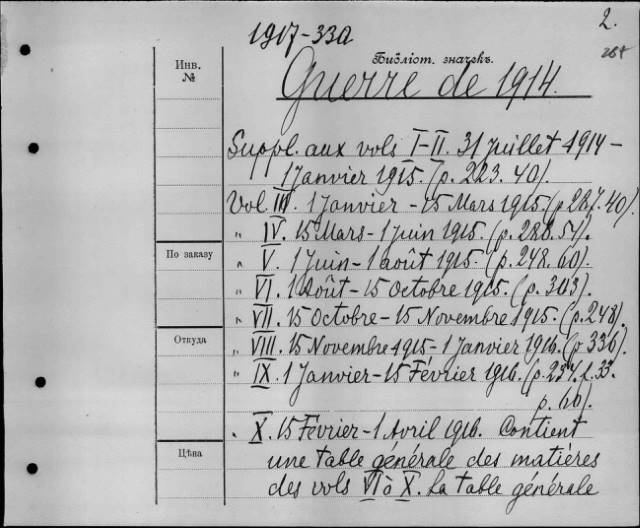 2.
1917-33a
264
Инв.
№
Библіот. значекъ.
Guerre de 1914.
Suppl. aux vols I-II. 31 Juillet 1914 -
1 Janvier 1915. (p. 223. 40).
Vol. III. 1 Janvier - 15 Mars 1915. (p. 287. 40).
" IV. 15 Mars - 1 Juin 1915. (p. 288. 54).
По заказу
" V. 1 Juin - 1 août 1915. (p. 248. 60).
" VI. 1 Août - 15 Octobre 1915. (p. 303).
" VII. 15 Octobre - 15 Novembre 1915. (p. 248).
Откуда
" VIII. 15 Novembre 1915. 1 Janvier 1916. (p. 336).
" IX. 1 Janvier - 15 Février 1916. (p. 237. f. 33.
p. 60).
" X. 15 Février - 1 Avril 1916. Contient
Цѣна
une table générale des matières
des vols VI à X. La table générale